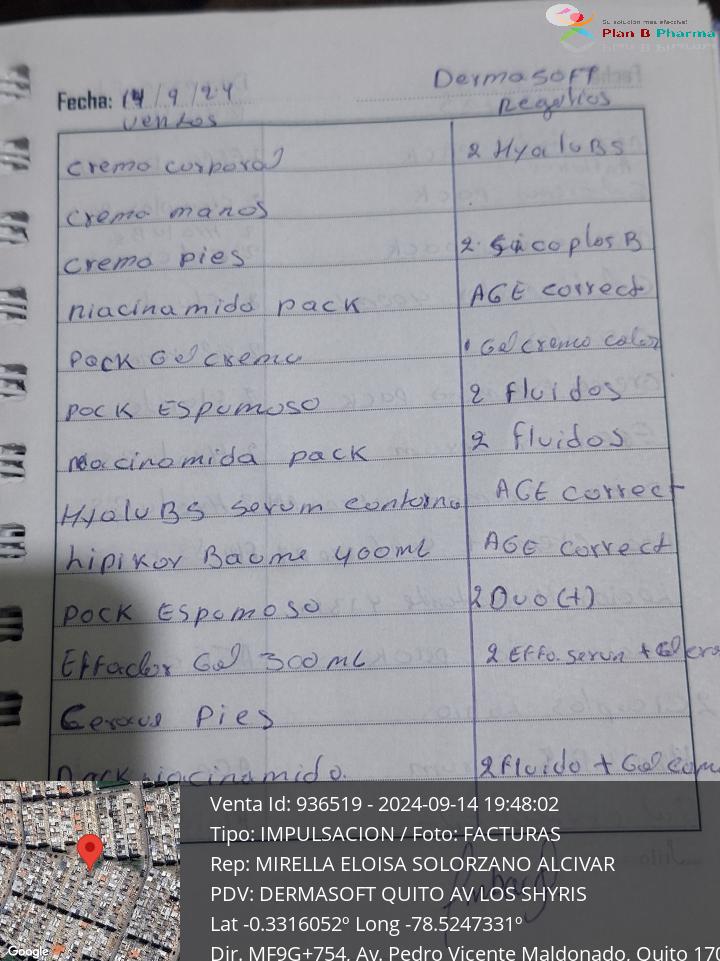 Su solución mas efectiva!
Plan B Pharma
Dermasoft
Fecha: 14/9/24 Regalios
ventas
crema corporal 2 Hyalu B5
crema manos
crema pies 2 Cicaplas B
niacinamida pack AGE correct
Pack Gel crema Gel crema color
pack Espumoso 2 fluidos
niacinamida pack 2 fluidos
Hyalu B5 serum contorno AGE correct
lipikar Baume 400ml AGE correct
pack Espomoso 2 Duo (+)
Effaclar Gel 300 ml 2 Effa. serun + Gel
Cerave Pies
Pack niacinamida. 2 fluido + Gel
Venta Id: 936519 - 2024-09-14 19:48:02
Tipo: IMPULSACION / Foto: FACTURAS
Rep: MIRELLA ELOISA SOLORZANO ALCIVAR
PDV: DERMASOFT QUITO AV LOS SHYRIS
Lat -0.3316052º Long -78.5247331º
Dir. MF9G+754, Av. Pedro Vicente Maldonado, Quito 170
Google